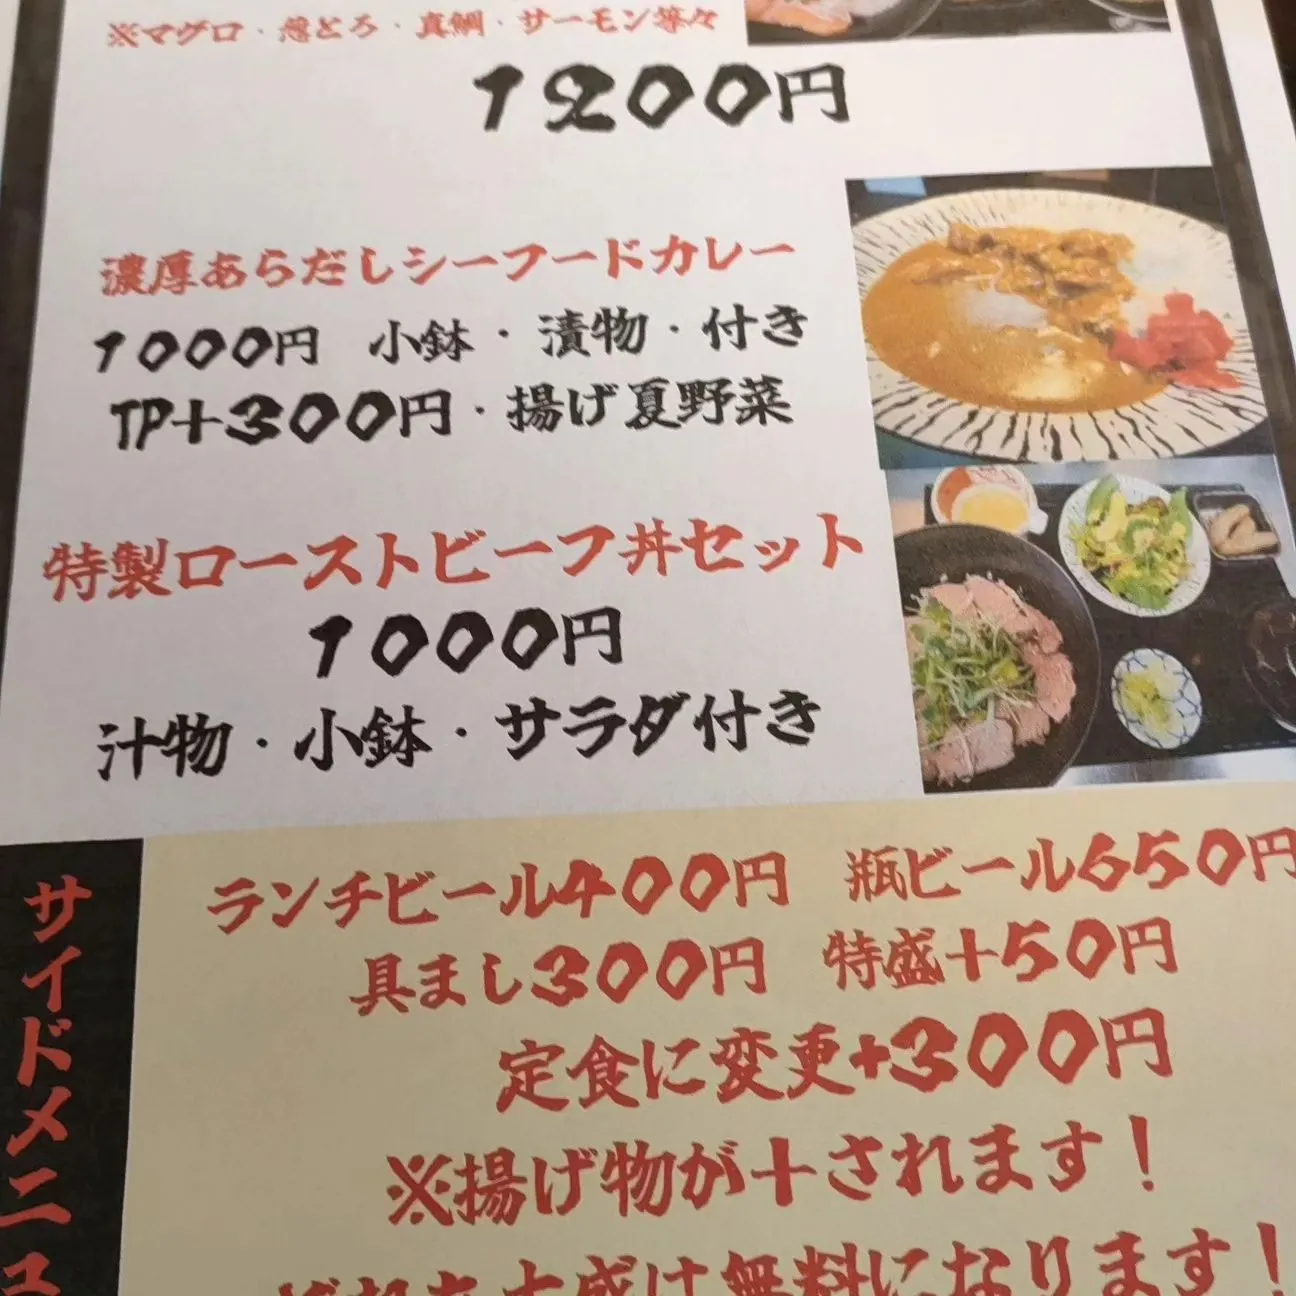 ※マグロ・葱とろ・真鯛・サーモン等々
1200円
濃厚あらだしシーフードカレー
1000円 小鉢・漬物・付き
TP+300円・揚げ夏野菜
特製ローストビーフ丼セット
1000円
汁物・小鉢・サラダ付き
サイドメニュ
ランチビール400円 瓶ビール650円
具まし300円 特盛+50円
定食に変更+300円
※揚げ物が+されます!
どれも大盛は無料になります!